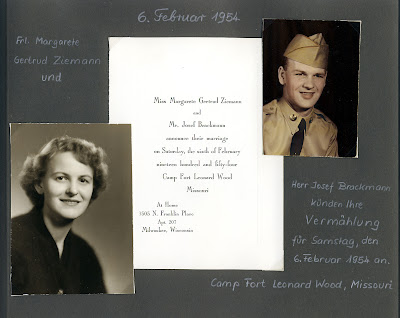 6. Februar 1954
Frl. Margarete
Gertrud Ziemann
und
Miss Margarete Gertrud Ziemann
and
Mr. Josef Brockmann
announce their marriage
on Saturday, the sixth of February
nineteen hundred and fifty-four
Camp Fort Leonard Wood
Missouri
At Home
N. Franklin Place
Apt. 207
Milwaukee, Wisconsin
Herr Josef Brockmann
künden Ihre
Vermählung
für Samstag, den
6. Februar 1954 an.
Camp Fort Leonard Wood, Missouri